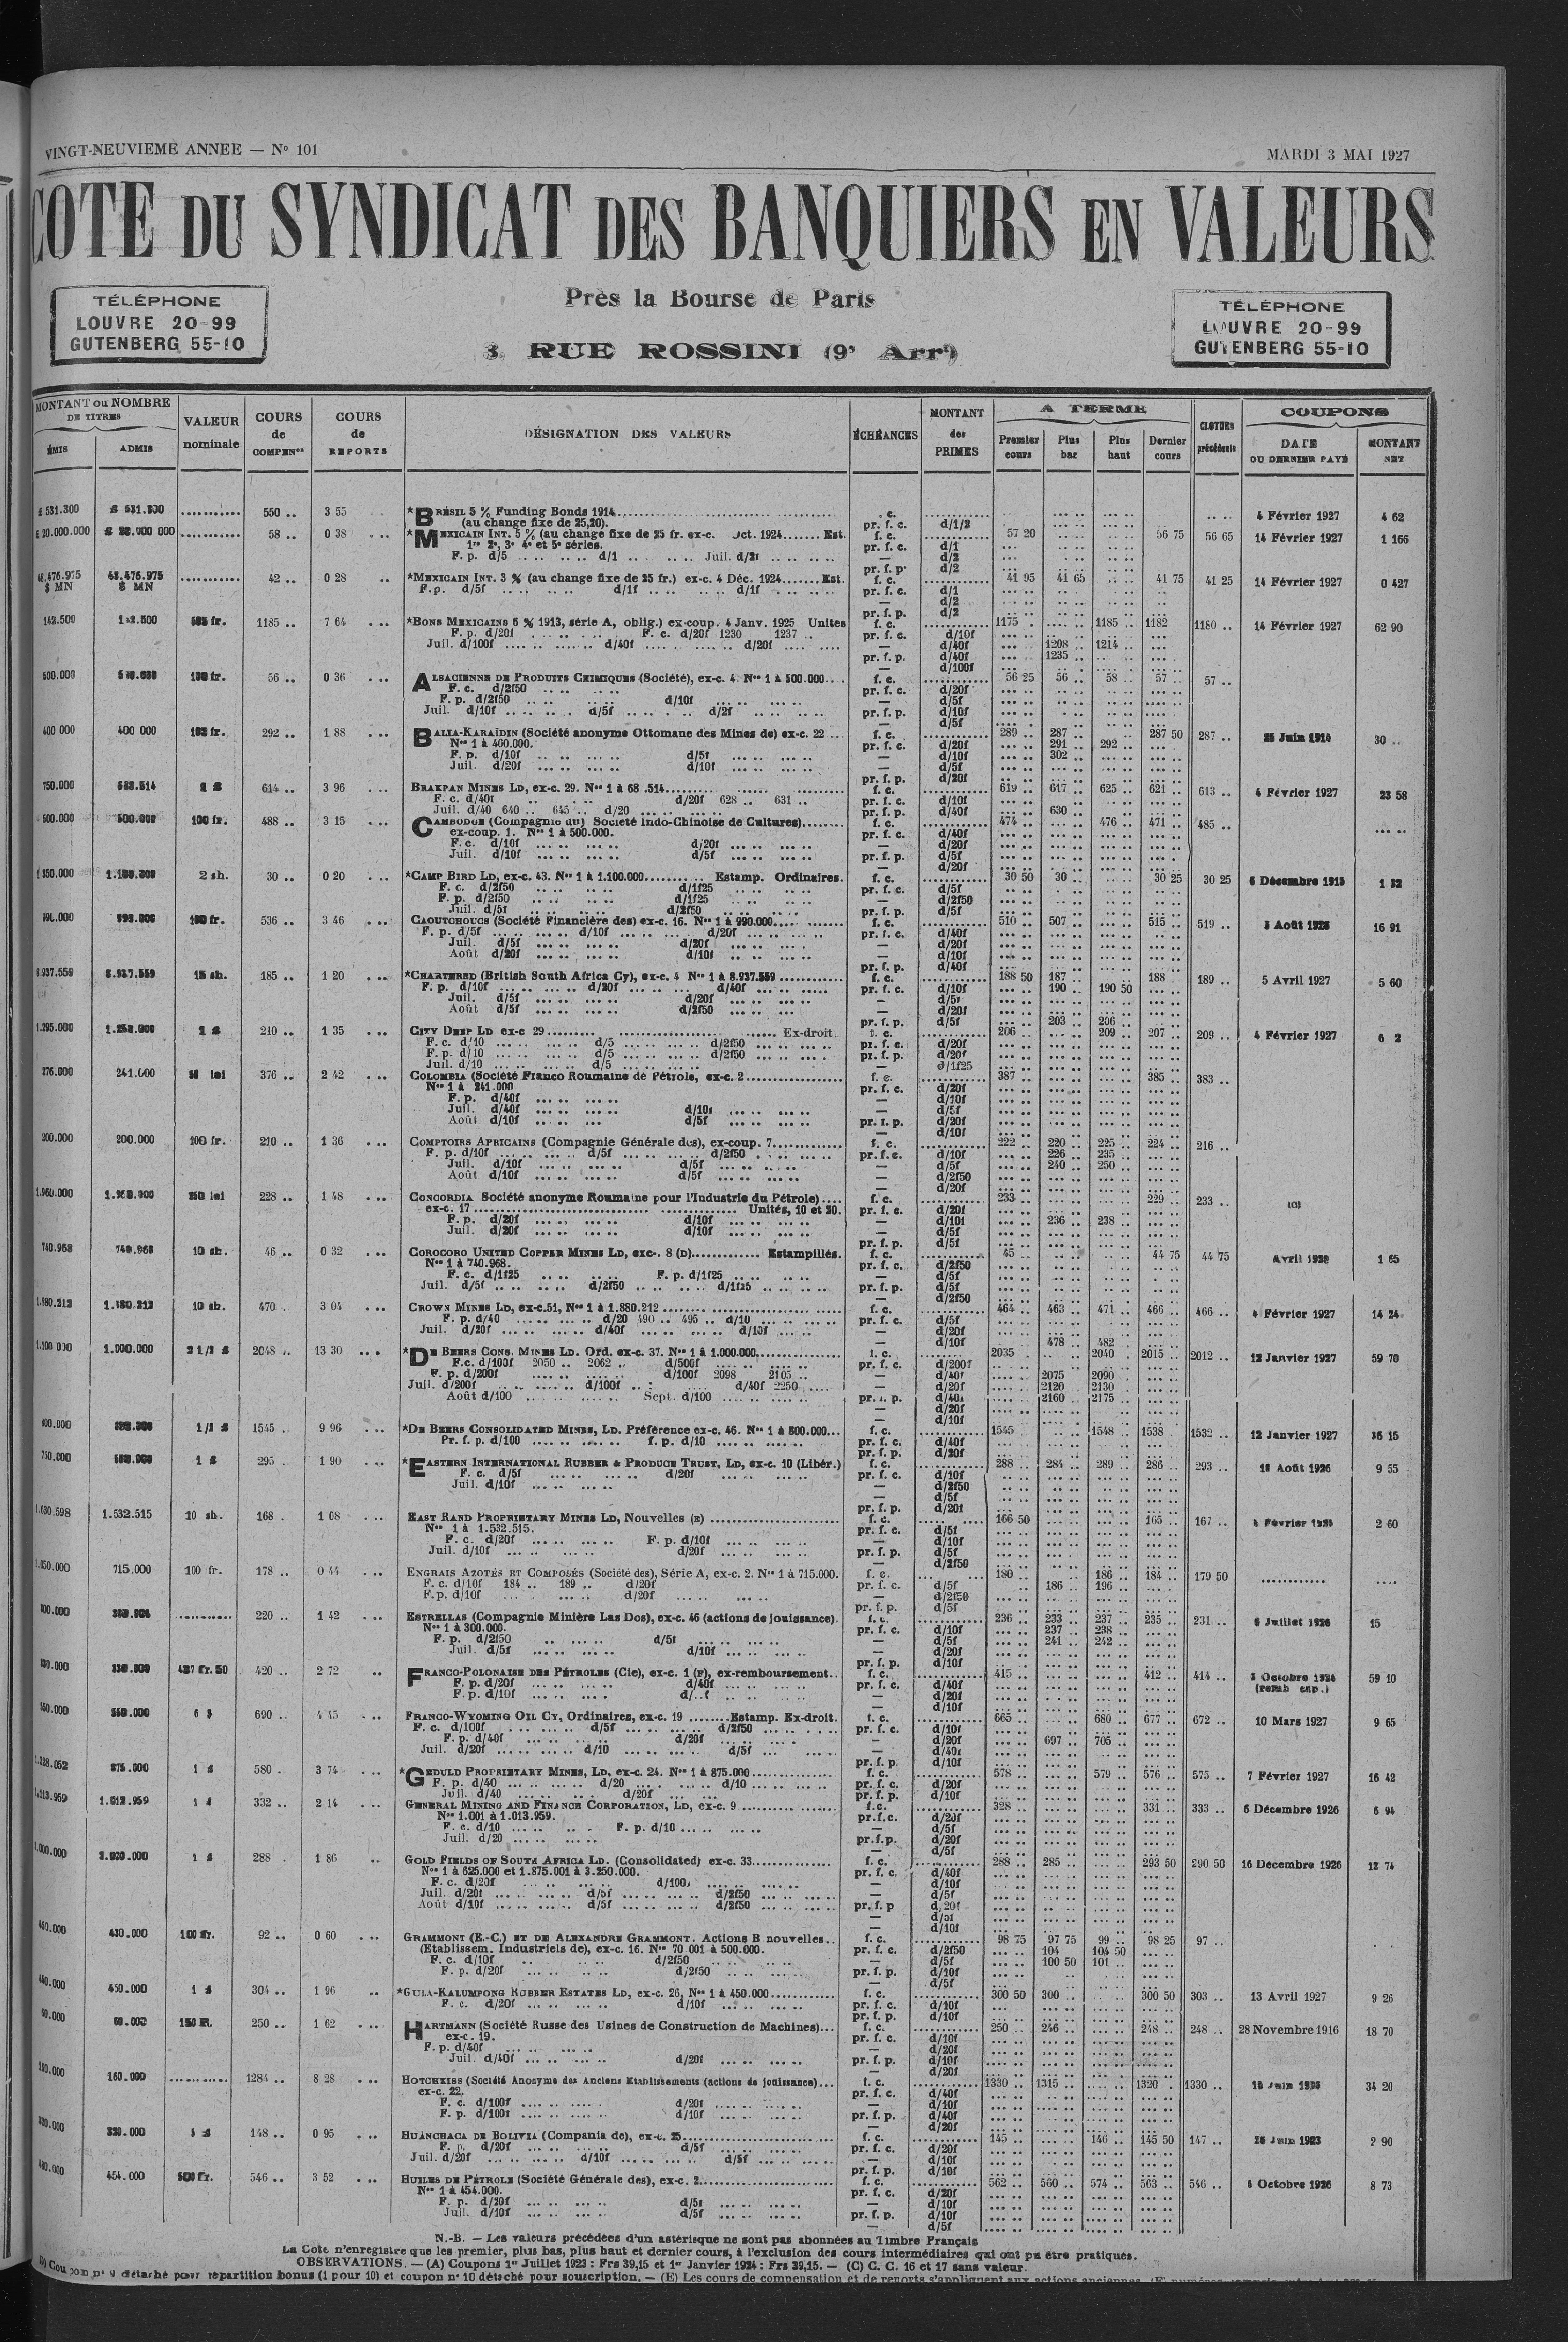 VINGT-NEUVIEME ANNEE — No 101
MARDI 3 MAI 1927
COTE DU SYNDICAT DES BANQUIERS EN VALEURS
TÉLÉPHONE
LOUVRE 20-99
GUTENBERG 55-10
Près la Bourse de Paris
3, RUE ROSSINI (9e Arrt)
TÉLÉPHONE
LOUVRE 20-99
GUTENBERG 55-10
MONTANT ou NOMBRE DE TITRES
ÉMIS ADMIS
VALEUR nominale
COURS de COMPENon
COURS de REPORTS
DÉSIGNATION DES VALEURS
ÉCHÉANCES
MONTANT des PRIMES
A TERME
Premier cours Plus bar Plus haut Dernier cours
CLOTURE précédente
COUPONS
DATE DU DERNIER PAYÉ
MONTANT NET
£ 531.300 550 .. 3 55 *BRÉSIL 5 % Funding Bonds 1914 4 Février 1927 4 62
(au change fixe de 25,20). pr. f. c. d/1/2
58 .. 0 38 *MEXICAIN INT. 5 % (au change fixe de 25 fr. ex-c. Oct. 1924 Est. f. c. 57 20 56 75 56 65 14 Février 1927 1 166
1re 2e, 3e 4e et 5e séries. pr. f. c. d/1
F. p. d/5 d/1 Juil. d/2f — d/2
pr. f. p. d/2
48.476.975 $ MN 42 .. 0 28 *MEXICAIN INT. 3 % (au change fixe de 25 fr.) ex-c. 4 Déc. 1924 Est. f. c. 41 95 41 65 41 75 41 25 14 Février 1927 0 427
F.p. d/5f d/1f d/1f pr. f. c. d/1
— d/2
pr. f. p. d/2
142.500 1185 .. 7 64 *BONS MEXICAINS 6 % 1913, série A, oblig.) ex-coup. 4 Janv. 1925 Unites f. c. 1175 1185 .. 1182 1180 .. 14 Février 1927 62 90
F. p. d/20f F. c. d/20f 1230 1237 .. pr. f. c. d/10f
Juil. d/100f d/40f d/20f — d/40f 1208 .. 1214 ..
pr. f. p. d/40f 1235 ..
— d/100f
500.000 100 fr. 56 .. 0 36 ALSACIENNE DE PRODUITS CHIMIQUES (Société), ex-c. 4. Nos 1 à 500.000 f. c. 56 25 56 .. 58 .. 57 .. 57 ..
F. c. d/2f50 pr. f. c. d/20f
F. p. d/2f50 d/10f — d/5f
Juil. d/10f d/5f d/2f pr. f. p. d/10f
— d/5f
400 000 400 000 292 .. 1 88 BALIA-KARAÏDIN (Société anonyme Ottomane des Mines de) ex-c. 22 f. c. 289 .. 287 .. 287 50 287 .. 25 Juin 1914 30 ..
Nos 1 à 400.000. pr. f. c. d/20f 291 .. 292 ..
F. p. d/10f d/5f — d/10f 302 ..
Juil. d/20f d/10f — d/5f
pr. f. p. d/20f
750.000 614 .. 3 96 BRAKPAN MINES LD, ex-c. 29. f. c. 619 .. 617 .. 625 .. 621 .. 613 .. 4 Février 1927 23 58
F. c. d/40f d/20f 628 .. 631 .. pr. f. c. d/10f
Juil. d/40 640 .. 645 .. d/20 pr. f. p. d/40f 630 ..
500.000 500.000 100 fr. 488 .. 3 15 CAMBODGE (Compagnie du) Société Indo-Chinoise de Cultures) f. c. 474 .. 476 .. 471 .. 485 ..
ex-coup. 1. Nos 1 à 500.000. pr. f. c. d/40f
F. c. d/10f d/20f — d/20f
Juil. d/10f d/5f pr. f. p. d/5f
— d/20f
2 sh. 30 .. 0 20 *CAMP BIRD LD, ex-c. 43. Nos 1 à 1.100.000 Estamp. Ordinaires. f. c. 30 50 30 .. 30 25 30 25 6 Décembre 1915 1 32
F. c. d/2f50 d/1f25 pr. f. c. d/5f
F. p. d/2f50 d/1f25 — d/2f50
Juil. d/5f d/2f50 pr. f. p. d/5f
100 fr. 536 .. 3 46 CAOUTCHOUCS (Société Financière des) ex-c. 16. Nos 1 à 990.000 f. c. 510 .. 507 .. 515 .. 519 .. 16 91
F. p. d/5f d/10f d/20f pr. f. c. d/40f
Juil. d/5f d/20f — d/20f
Août d/20f d/10f — d/10f
pr. f. p. d/40f
8.937.559 8.937.559 15 sh. 185 .. 1 20 *CHARTERED (British South Africa Cy), ex-c. 4 Nos 1 à 8.937.559 f. c. 188 50 187 .. 188 189 .. 5 Avril 1927 5 60
F. p. d/10f d/20f d/40f pr. f. c. d/10f 190 .. 190 50
Juil. d/5f d/20f — d/5f
Août d/5f d/2f50 — d/20f
pr. f. p. d/5f 203 .. 206 ..
210 .. 1 35 CITY DEEP LD ex-c 29 Ex-droit. f. c. 206 .. 209 .. 207 .. 209 .. 4 Février 1927
F. c. d/10 d/5 d/2f50 pr. f. c. d/20f
F. p. d/10 d/5 d/2f50 pr. f. p. d/20f
Juil. d/10 d/5 — d/1f25
241.000 376 .. 2 42 COLOMBIA (Société Franco Roumaine de Pétrole, ex-c. 2 f. c. 387 .. 385 .. 383 ..
Nos 1 à 241.000 pr. f. c. d/20f
F. p. d/40f — d/10f
Juil. d/40f d/10f — d/5f
Août d/10f d/5f pr. f. p. d/20f
— d/10f
200.000 200.000 100 fr. 210 .. 1 36 COMPTOIRS AFRICAINS (Compagnie Générale des), ex-coup. 7 f. c. 222 .. 220 .. 225 .. 224 .. 216 ..
F. p. d/10f d/5f d/2f50 pr. f. c. d/10f 226 .. 235 ..
Juil. d/10f d/5f — d/5f 240 .. 250 ..
Août d/10f d/5f — d/2f50
— d/20f
250 lei 228 .. 1 48 CONCORDIA Société anonyme Roumaine pour l'Industrie du Pétrole) f. c. 233 .. 229 .. 233 ..
ex-c. 17 Unités, 10 et 20. pr. f. c. d/20f
F. p. d/20f d/10f — d/10f 236 .. 238 ..
Juil. d/20f d/10f — d/5f
pr. f. p. d/5f
740.968 740.968 10 sh. 46 .. 0 32 COROCORO UNITED COPPER MINES LD, exc-. 8 (D) Estampillés. f. c. 45 .. 44 75 44 75 1 65
Nos 1 à 740.968. pr. f. c. d/2f50
F. c. d/1f25 F. p. d/1f25 — d/5f
Juil. d/5f d/2f50 d/1f25 pr. f. p. d/5f
— d/2f50
1.880.212 1.880.212 10 sh. 470 . 3 04 CROWN MINES LD, ex-c.51, Nos 1 à 1.880.212 f. c. 464 .. 463 .. 471 .. 466 .. 466 .. 4 Février 1927 14 24
F. p. d/40 d/20 490 .. 495 .. d/10 pr. f. c. d/5f
Juil. d/20f d/40f — d/20f
— d/10f 478 .. 482 ..
1.000.000 2 1/2 £ 2048 .. 13 30 *DE BEERS CONS. MINES LD. Ord. ex-c. 37. Nos 1 à 1.000.000 f. c. 2035 2040 .. 2015 .. 2012 .. 12 Janvier 1927 59 70
F.c. d/100f 2050 .. 2062 .. d/500f pr. f. c. d/200f
F. p. d/200f d/100f 2098 2105 .. — d/40f 2075 2090
Juil. d/200f d/100f d/40f 2250 — d/20f 2120 2130
Août d/100 Sept. d/100 pr. f. p. d/40f 2160 2175
— d/20f
— d/10f
1545 .. 9 96 *DE BEERS CONSOLIDATED MINES, LD. Préférence ex-c. 46. Nos 1 à 800.000 f. c. 1545 1548 .. 1538 1532 .. 12 Janvier 1927 36 15
Pr. f. p. d/100 f. p. d/10 pr. f. c. d/40f
pr. f. p. d/20f
295 . 1 90 *EASTERN INTERNATIONAL RUBBER & PRODUCE TRUST, LD, ex-c. 10 (Libér.) f. c. 288 .. 284 .. 289 .. 286 .. 293 .. 9 55
F. c. d/5f d/20f pr. f. c. d/10f
Juil. d/10f — d/2f50
— d/5f
pr. f. p. d/20f
1.532.515 10 sh. 168 . 1 08 EAST RAND PROPRIETARY MINES LD, Nouvelles (E) f. c. 166 50 165 .. 167 .. 2 60
Nos 1 à 1.532.515. pr. f. c. d/5f
F. c. d/20f F. p. d/10f — d/10f
Juil. d/10f d/20f pr. f. p. d/5f
— d/2f50
715.000 100 fr. 178 .. 0 44 ENGRAIS AZOTÉS ET COMPOSÉS (Société des), Série A, ex-c. 2. Nos 1 à 715.000. f. c. 180 .. 186 .. 184 .. 179 50
F. c. d/10f 184 .. 189 .. d/20f pr. f. c. d/5f 186 .. 196 ..
F. p. d/10f d/20f — d/2f50
pr. f. p. d/5f
220 .. 1 42 ESTRELLAS (Compagnie Minière Las Dos), ex-c. 46 (actions de jouissance). f. c. 236 .. 233 .. 237 .. 235 .. 231 .. 6 Juillet 1926 15
Nos 1 à 300.000. pr. f. c. d/10f 237 .. 238 ..
F. p. d/2f50 d/5f — d/5f 241 .. 242 ..
Juil. d/5f d/10f — d/20f
pr. f. p. d/10f
420 .. 2 72 FRANCO-POLONAISE DES PÉTROLES (Cie), ex-c. 1 (F), ex-remboursement f. c. 415 .. 412 .. 414 .. 59 10
F. p. d/20f d/40f pr. f. c. d/40f
F. p. d/10f — d/20f
— d/10f
690 .. 4 45 FRANCO-WYOMING OIL CY, Ordinaires, ex-c. 19 Estamp. Ex-droit. f. c. 665 .. 680 .. 677 .. 672 .. 10 Mars 1927 9 65
F. c. d/100f d/5f d/2f50 pr. f. c. d/10f
F. p. d/40f d/20f — d/20f 697 .. 705 ..
Juil. d/20f d/10 d/5f — d/40f
pr. f. p. d/10f
875.000 580 . 3 74 *GEDULD PROPRIETARY MINES, LD, ex-c. 24. Nos 1 à 875.000 f. c. 578 .. 579 .. 576 .. 575 .. 7 Février 1927 16 42
F. p. d/40 d/20 d/10 pr. f. c. d/20f
Juil. d/40 d/20f pr. f. p. d/10f
1.013.959 332 .. 2 14 GENERAL MINING AND FINANCE CORPORATION, LD, ex-c. 9 f. c. 328 .. 331 .. 333 .. 6 Décembre 1926 6 94
Nos 1.001 à 1.013.959. pr.f.c. d/20f
F. c. d/10 F. p. d/10 — d/5f
Juil. d/20 pr.f.p. d/20f
— d/5f
1 £ 288 . 1 86 GOLD FIELDS OF SOUTH AFRICA LD. (Consolidated) ex-c. 33 f. c. 288 .. 285 .. 293 50 290 50 16 Décembre 1926 12 74
Nos 1 à 625.000 et 1.875.001 à 3.250.000. pr. f. c. d/40f
F. c. d/20f d/100f — d/10f
Juil. d/20f d/5f d/2f50 — d/5f
Août d/10f d/5f d/2f50 pr. f. p d/20f
— d/5f
— d/10f
430.000 92 .. 0 60 GRAMMONT (E.-C.) ET DE ALEXANDRE GRAMMONT. Actions B nouvelles f. c. 98 75 97 75 99 .. 98 25 97 ..
(Etablissem. Industriels de), ex-c. 16. Nos 70 001 à 500.000. pr. f. c. d/2f50 104 104 50
F. c. d/10f d/2f50 — d/5f 100 50 101 ..
F. p. d/20f d/2f50 pr. f. p. d/10f
— d/5f
450.000 304 .. 1 96 *GULA-KALUMPONG RUBBER ESTATES LD, ex-c. 26, Nos 1 à 450.000 f. c. 300 50 300 .. 300 50 303 .. 13 Avril 1927 9 26
F. c. d/20f d/10f pr. f. c. d/10f
pr. f. p. d/10f
250 .. 1 62 HARTMANN (Société Russe des Usines de Construction de Machines) f. c. 250 .. 246 .. 248 .. 248 .. 28 Novembre 1916 18 70
ex-c. 19. pr. f. c. d/10f
F. p. d/40f — d/20f
Juil. d/40f d/20f pr. f. p. d/10f
— d/20f
160.000 1284 .. 8 28 HOTCHKISS (Société Anonyme des Anciens Etablissements (actions de jouissance) f. c. 1330 .. 1315 .. 1320 . 1330 .. 34 20
ex-c. 22. pr. f. c. d/40f
F. c. d/100f d/20f — d/10f
F. p. d/100f d/10f pr. f. p. d/40f
— d/20f
320.000 148 .. 0 95 HUANCHACA DE BOLIVIA (Compania de), ex-c. 25 f. c. 145 .. 146 .. 145 50 147 .. 2 90
F. p. d/20f d/5f pr. f. c. d/20f
Juil. d/20f d/10f d/5f — d/10f
pr. f. p. d/10f
454.000 500 fr. 546 .. 3 52 HUILES DE PÉTROLE (Société Générale des), ex-c. 2 f. c. 562 .. 560 .. 574 .. 563 .. 546 .. 4 Octobre 1926 8 73
Nos 1 à 454.000. pr. f. c. d/20f
F. p. d/20f d/5f — d/10f
Juil. d/10f d/5f pr. f. p. d/10f
— d/5f
N.-B. — Les valeurs précédées d'un astérisque ne sont pas abonnées au Timbre Français
La Cote n'enregistre que les premier, plus bas, plus haut et dernier cours, à l'exclusion des cours intermédiaires qui ont pu être pratiques.
OBSERVATIONS. — (A) Coupons 1er Juillet 1923 : Frs 39,15 et 1er Janvier 1924 : Frs 39,15. — (C) C. C. 16 et 17 sans valeur.
D) Coupon no 9 détaché pour répartition bonus (1 pour 10) et coupon no 10 détaché pour souscription. — (E) Les cours de compensation et de reports s'appliquent aux actions anciennes